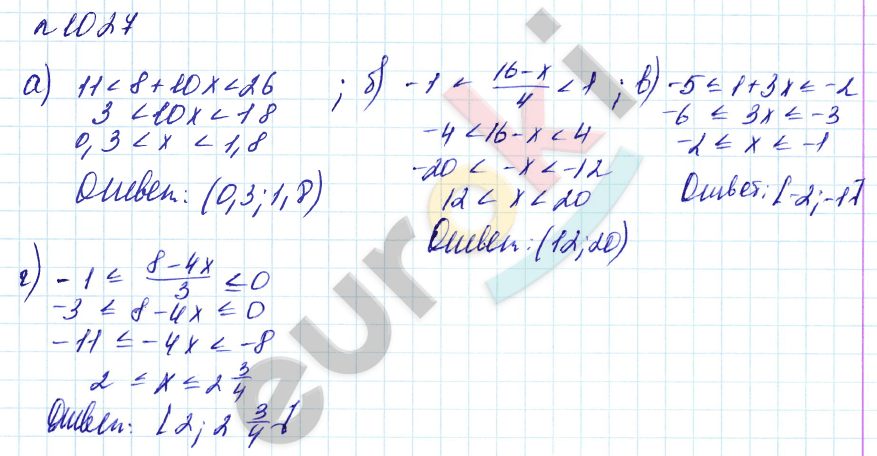 n 1027
а) 11 < 8 + 10x < 26
3 < 10x < 18
0,3 < x < 1,8
Ответ: (0,3; 1,8)
; б) -1 < (16-x)/4 < 1
-4 < 16-x < 4
-20 < -x < -12
12 < x < 20
Ответ: (12; 20)
; в) -5 ≤ 1+3x ≤ -2
-6 ≤ 3x ≤ -3
-2 ≤ x ≤ -1
Ответ: [-2; -1]
г) -1 ≤ (8-4x)/3 ≤ 0
-3 ≤ 8-4x ≤ 0
-11 ≤ -4x ≤ -8
2 ≤ x ≤ 2 3/4
Ответ: [2; 2 3/4]
euroki